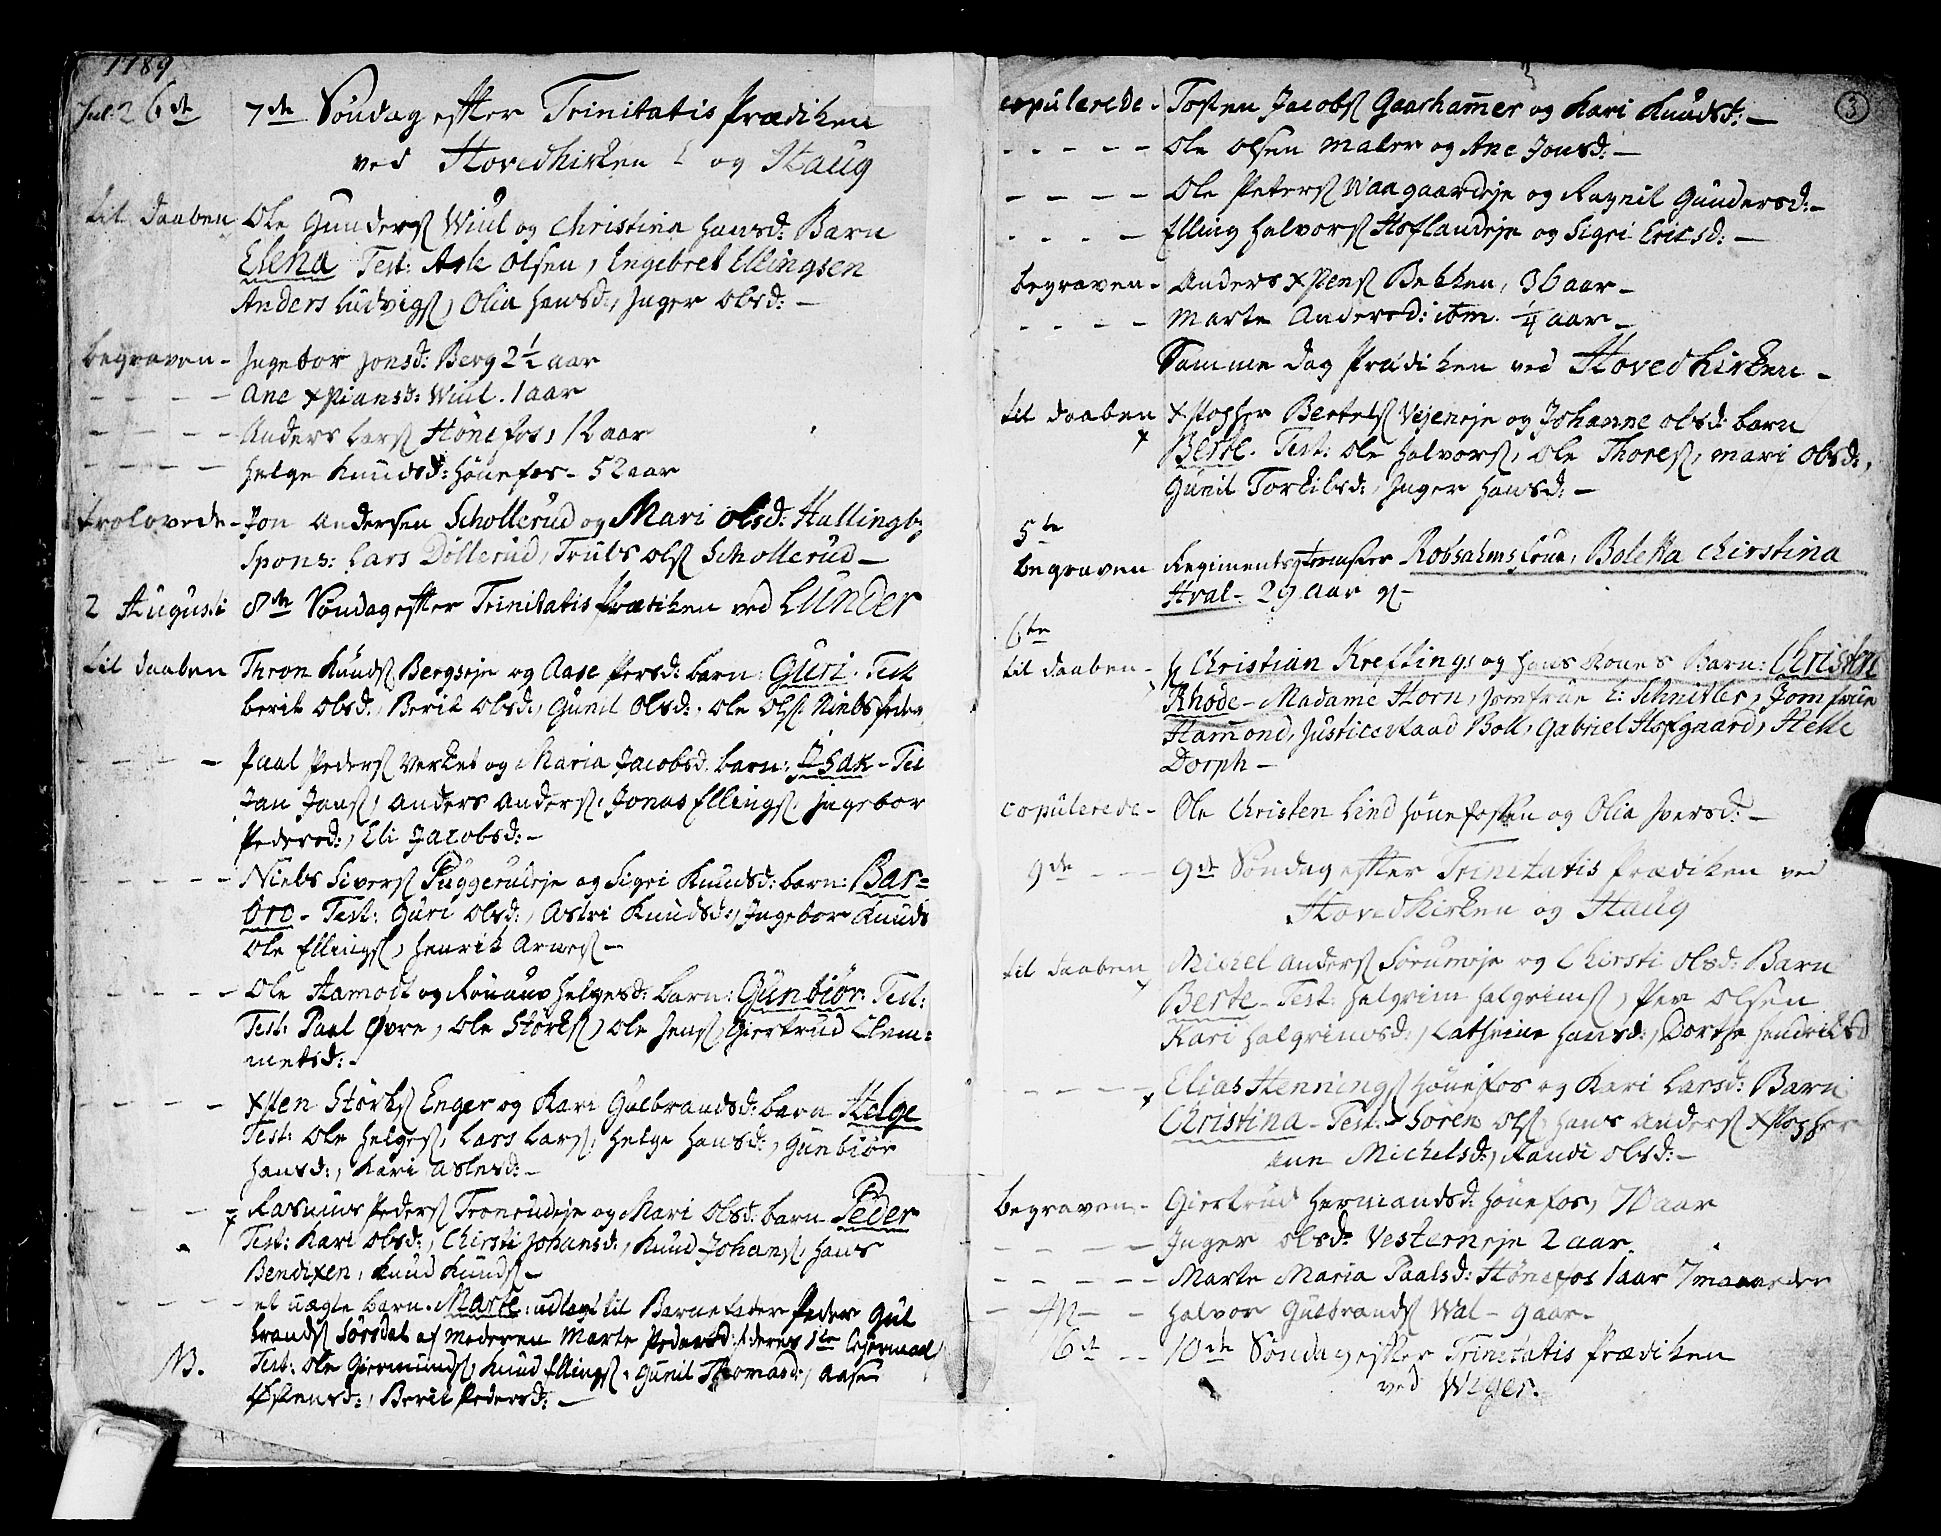 1789
Jul: 26de 7de Søndag efter Trinitatis Prædiken
ved Hovedkirken og Haug
til daaben Ole Gunders Wiul og Christine Hansd: Barn
Elena Test: Ask Olsen, Engebret Ellingsen
Anders Ludvigs, Olia Hansd:, Inger Olsd: -
begraven - Ingebor Jonsd: Berg 2½ aar
- - - - Ane Xstiansd: Wiul. 1 aar
- - - - Anders Lars Hønefos, 12 aar
- - - - Helge Knudsd: Hønefos - 52 aar
trolovede - Jon Andersen Schollerud og Mari Olsd: Hallingby
Spons: Lars Døllerud, Truls Ols Schollerud -
2 Augusti 8de Søndag efter Trinitatis Prædiken ved Lunder
til daaben Thron Knuds Bergseje og Aase Persd: barn: Guri. Test
Berit Olsd:, Berit Olsd:, Gunil Olsd:, Ole Ols: Niels Peder
- - - - Paal Peders Verket og Maria Jacobsd. barn: Isak - Tes
Jan Jans, Anders Anders, Jonas Ellings, Ingebor
Pedersd:, Eli Jacobsd: -
- - - - Niels Sivers Puggerudeje og Sigri Knudsd: barn: Bar=
bro - Test: Guri Olsd:, Astri Knudsd:, Ingebor Knuds
Ole Ellings, Henrik Arnes -
- - - - Ole Hamost og Rønaug Helgesd: barn: Gunbiør. Test:
Test: Paal Øvre, Ole Størks, Ole Jens, Giertrud Clem=
metsd: -
- - - - Xsten Størks Enger og Kari Gulbrandsd: barn Helge
Test: Ole Helges, Lars Lars, Helge Hansd:, Gunbiør
Hansd:, Kari Aslesd: -
- - - - Rasmus Peders Tronrudeje og Mari Olsd: barn Peder
Test: Kari Olsd:, Chirsti Johansd:, Knud Johans, Hans
Bendixen, Knud Knuds -
- - - - et uægte barn. Marte: udlagt til Barnefader Peder Gul
brands Sørsdal af moderen Marte Pedersd: deres 1te Lejermaal
NB. Test: Ole Giermunds, Knud Ellings, Gunil Thomasd:, Aase
Østensd:, Berit Pedersd: -
3
copulerede - Tosten Jacobs Gaarhamer og Kari Knudsd: -
- - - - - Ole Olsen Maler og Ane Jonsd: -
- - - - Ole Peters Waagaardeje og Ragnil Gundersd: -
- - - - Elling Halvors Hoflandeje og Sigri Ericsd: -
begraven - Anders Xstens Bekken, 36 aar -
- - - - Marte Andersd: ibm. ¼ aar -
Samme Dag Prædiken ved Hovedkirken -
til daaben Xstopher Bertels Vejeneje og Johanne Olsd: barn
Berte. Test: Ole Halvors, Ole Thores, Mari Olsd:,
Gunil Torkilsd:, Inger Hansd: -
5te
begraven Regiments Robsahms Frue, Boletta Christina
Hval - 29 aar gl -
6te
til daaben - Christian Kreftings og hans Kones Barn: Christen
Rhode - Madame Horn, Jomfrue L: Schnitler, Jomfrue
Hammond, Justiceraad Boll, Gabriel Hofgaard, Helle
Dorph -
copulerede - Ole Christen Lind Hønefossen og Olia Iversd: -
9de - - - 9de Søndag efter Trinitatis Prædiken ved
Hovedkirken og Haug
til daaben Michel Anders Sørumeje og Chirsti Olsd: Barn
Berte - Test: Halgrim Halgrims, Per Olsen
Kari Halgrimsd:, Cathrine Hansd:, Dorthe Hendriksd
- - - - Elias Hennings Hønefos og Kari Larsd: Barn
Christina - Test. Søren Ols, Hans Anders Xstopher
Ane Michelsd:, Randi Olsd: -
begraven - Giertrud Hermandsd: Hønefos, 70 aar
- - - - Inger Olsd: Vesterneje 2 aar.
- - - - - Marte Maria Paalsd: Hønefos 1 aar 7 maaneder
- - - - Halvor Gulbrands Wal - 9 aar -
16de - - 10de Søndag efter Trinitatis Prædiken
ved Wiger.